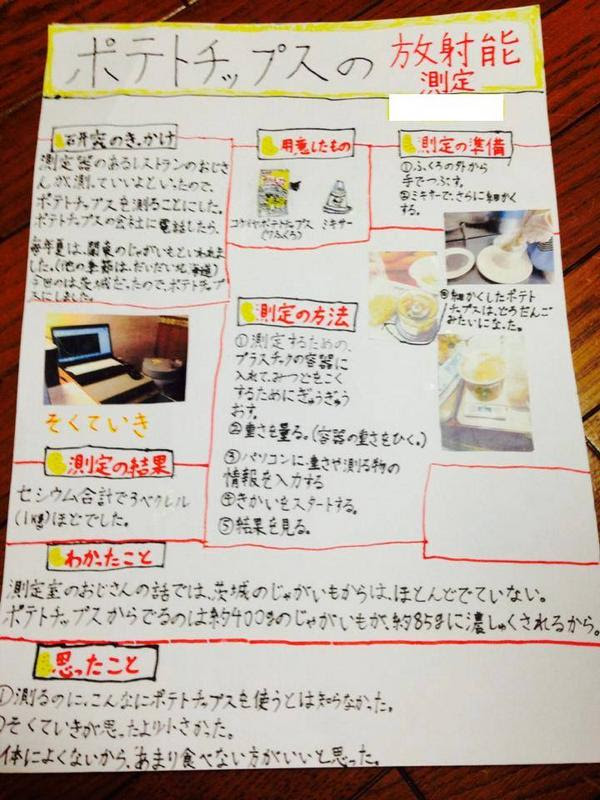 ポテトチップスの 放射能
測定
研究のきっかけ
測定器のあるレストランのおじさ
んが測っていいよといったので、
ポテトチップスを測ることにした。
ポテトチップスの会社に電話したら、
毎年夏は、関東のじゃがいもといわれま
した。(他の季節は、だいだい北海道)
今回のは茨城だったので、ポテトチップ
スにしました。
そくていき
用意したもの
コイケヤポテトチップス
ミキサー
測定の準備
①ふくろの外から
手でつぶす。
②ミキサーで、さらに細かく
する。
③細かくしたポテト
チップスは、どろだんご
みたいになった。
測定の方法
①測定するための、
プラスチックの容器に
入れて、みつどをこく
するためにぎゅうぎゅう
おす。
②重さを量る。(容器の重さをひく。)
③パソコンに、重さや測る物の
情報を入力する
④きかいをスタートする。
⑤結果を見る。
測定の結果
セシウム合計で3ベクレル
(1kg)ほどでした。
わかったこと
測定室のおじさんの話では、茨城のじゃがいもからは、ほとんどでていない。
ポテトチップスからでるのは約400gのじゃがいもが、約85gに濃しゅくされるから。
思ったこと
①測るのに、こんなにポテトチップスを使うとは知らなかった。
そくていきが思ったより小さかった。
体によくないから、あまり食べない方がいいと思った。